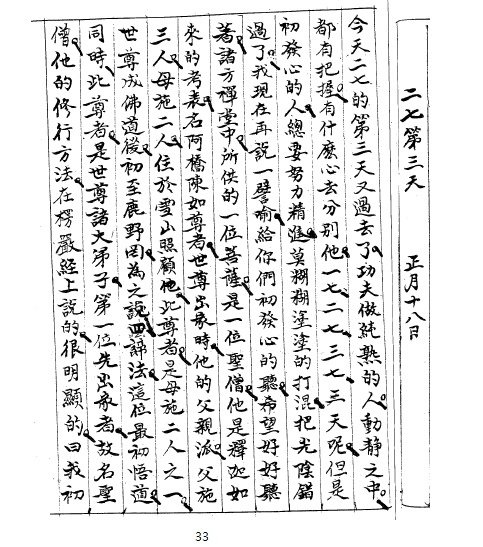 二七第三天 正月十八日
今天二七的第三天又過去了。功夫做純熟的人。動靜之中。
都有把握。有什麼心去分別他。一七、二七、三七、三天呢。但是
初發心的人。總要努力精進。莫糊糊塗塗的打混。把光陰錯
過了。我現在再說一譬喻。給你們初發心的聽。希望好好聽
著。諸方禪堂中。所供的一位菩薩。是一位聖僧。他是釋迦如
來的老表。名阿憍陳如尊者。世尊出家時。他的父親派父施
三人。母施二人。住於雪山照顧他。此尊者。是母施二人之一。
世尊成佛道後。初至鹿野為之說四諦法。這位最初悟道。
同時。此尊者。是世尊諸大弟子。第一位先出家者。故名聖
僧。他的修行方法。在楞嚴經上說的。很明顯的。曰我初
33